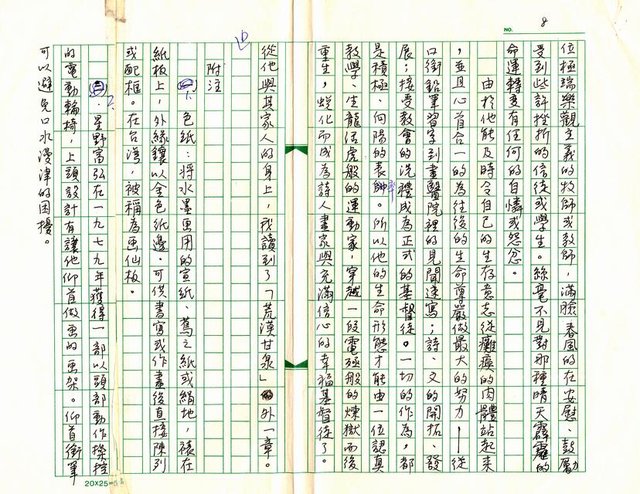 NO. 8
位極端樂觀主義的牧師或教師,滿臉春風的在安慰、鼓勵
受到些許挫折的信徒或學生。絲毫不見對那種晴天霹靂的
命運轉變有任何的自憐或怨忿。
由於他能及時令自己的生存意志從癱瘓的肉體站起來
,並且心首合一的為往後的生命尊嚴做最大的努力——從
口銜鉛筆習字到畫醫院裡的見聞速寫;詩、文的開拓、發
展;接受教會的洗禮成為正式的基督徒。一切的作為,都
是積極、向陽的表師。所以他的生命形態才能由一位認真
教學、生龍活虎般的運動家,穿越一段電極般的煉獄而後
重生,蛻化而成為詩人畫家與充滿信心的幸福基督徒了。
從他與其家人的身上,我讀到了「荒漠甘泉」外一章。
附注
1. 色紙:將水墨畫用的宣紙、蔦之紙或絹地,裱在
紙板上,外緣鑲以金色紙邊。可供書寫或作畫後直接陳列
或配框。在台灣,被稱為畫仙板。
2. 星野富弘在一九七九年獲得一部以頭部動作操控
的電動輪椅,上頭設計有讓他仰首做畫的畫架。仰首銜筆
可以避免口水漫津的困擾。
20X25